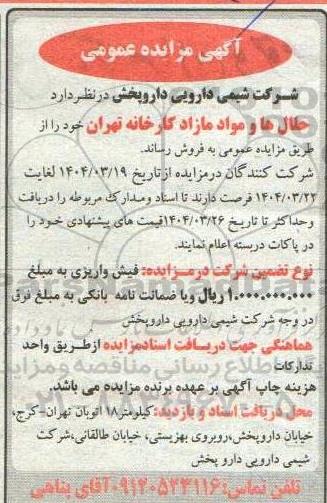 آگهی مزایده عمومی
شرکت شیمی دارویی داروپخش در نظر دارد
حلال ها و مواد مازاد کارخانه تهران خود را از
طریق مزایده عمومی به فروش رساند.
شرکت کنندگان در مزایده از تاریخ ۱۴۰۴/۰۳/۱۹ لغایت
۱۴۰۴/۰۳/۲۲ فرصت دارند تا اسناد و مدارک مربوطه را دریافت
وحداکثر تا تاریخ ۱۴۰۴/۰۳/۲۶ قیمت های پیشنهادی خود را
در پاکات دربسته اعلام نمایند.
نوع تضمین شرکت در مزایده: فیش واریزی به مبلغ
۱.۰۰۰.۰۰۰.۰۰۰ ریال ویا ضمانت نامه بانکی به مبلغ فوق
در وجه شرکت شیمی دارویی داروپخش
هماهنگی جهت دریافت اسناد مزایده از طریق واحد
تدارکات
هزینه چاپ آگهی بر عهده برنده مزایده می باشد.
محل دریافت اسناد و بازدید: کیلومتر۱۸ اتوبان تهران-کرج،
خیابان داروپخش، روبروی بهزیستی، خیابان طالقانی، شرکت
شیمی دارویی دارو پخش
تلفن تماس: ۰۹۱۲۰۵۳۳۱۱۶ آقای پناهی